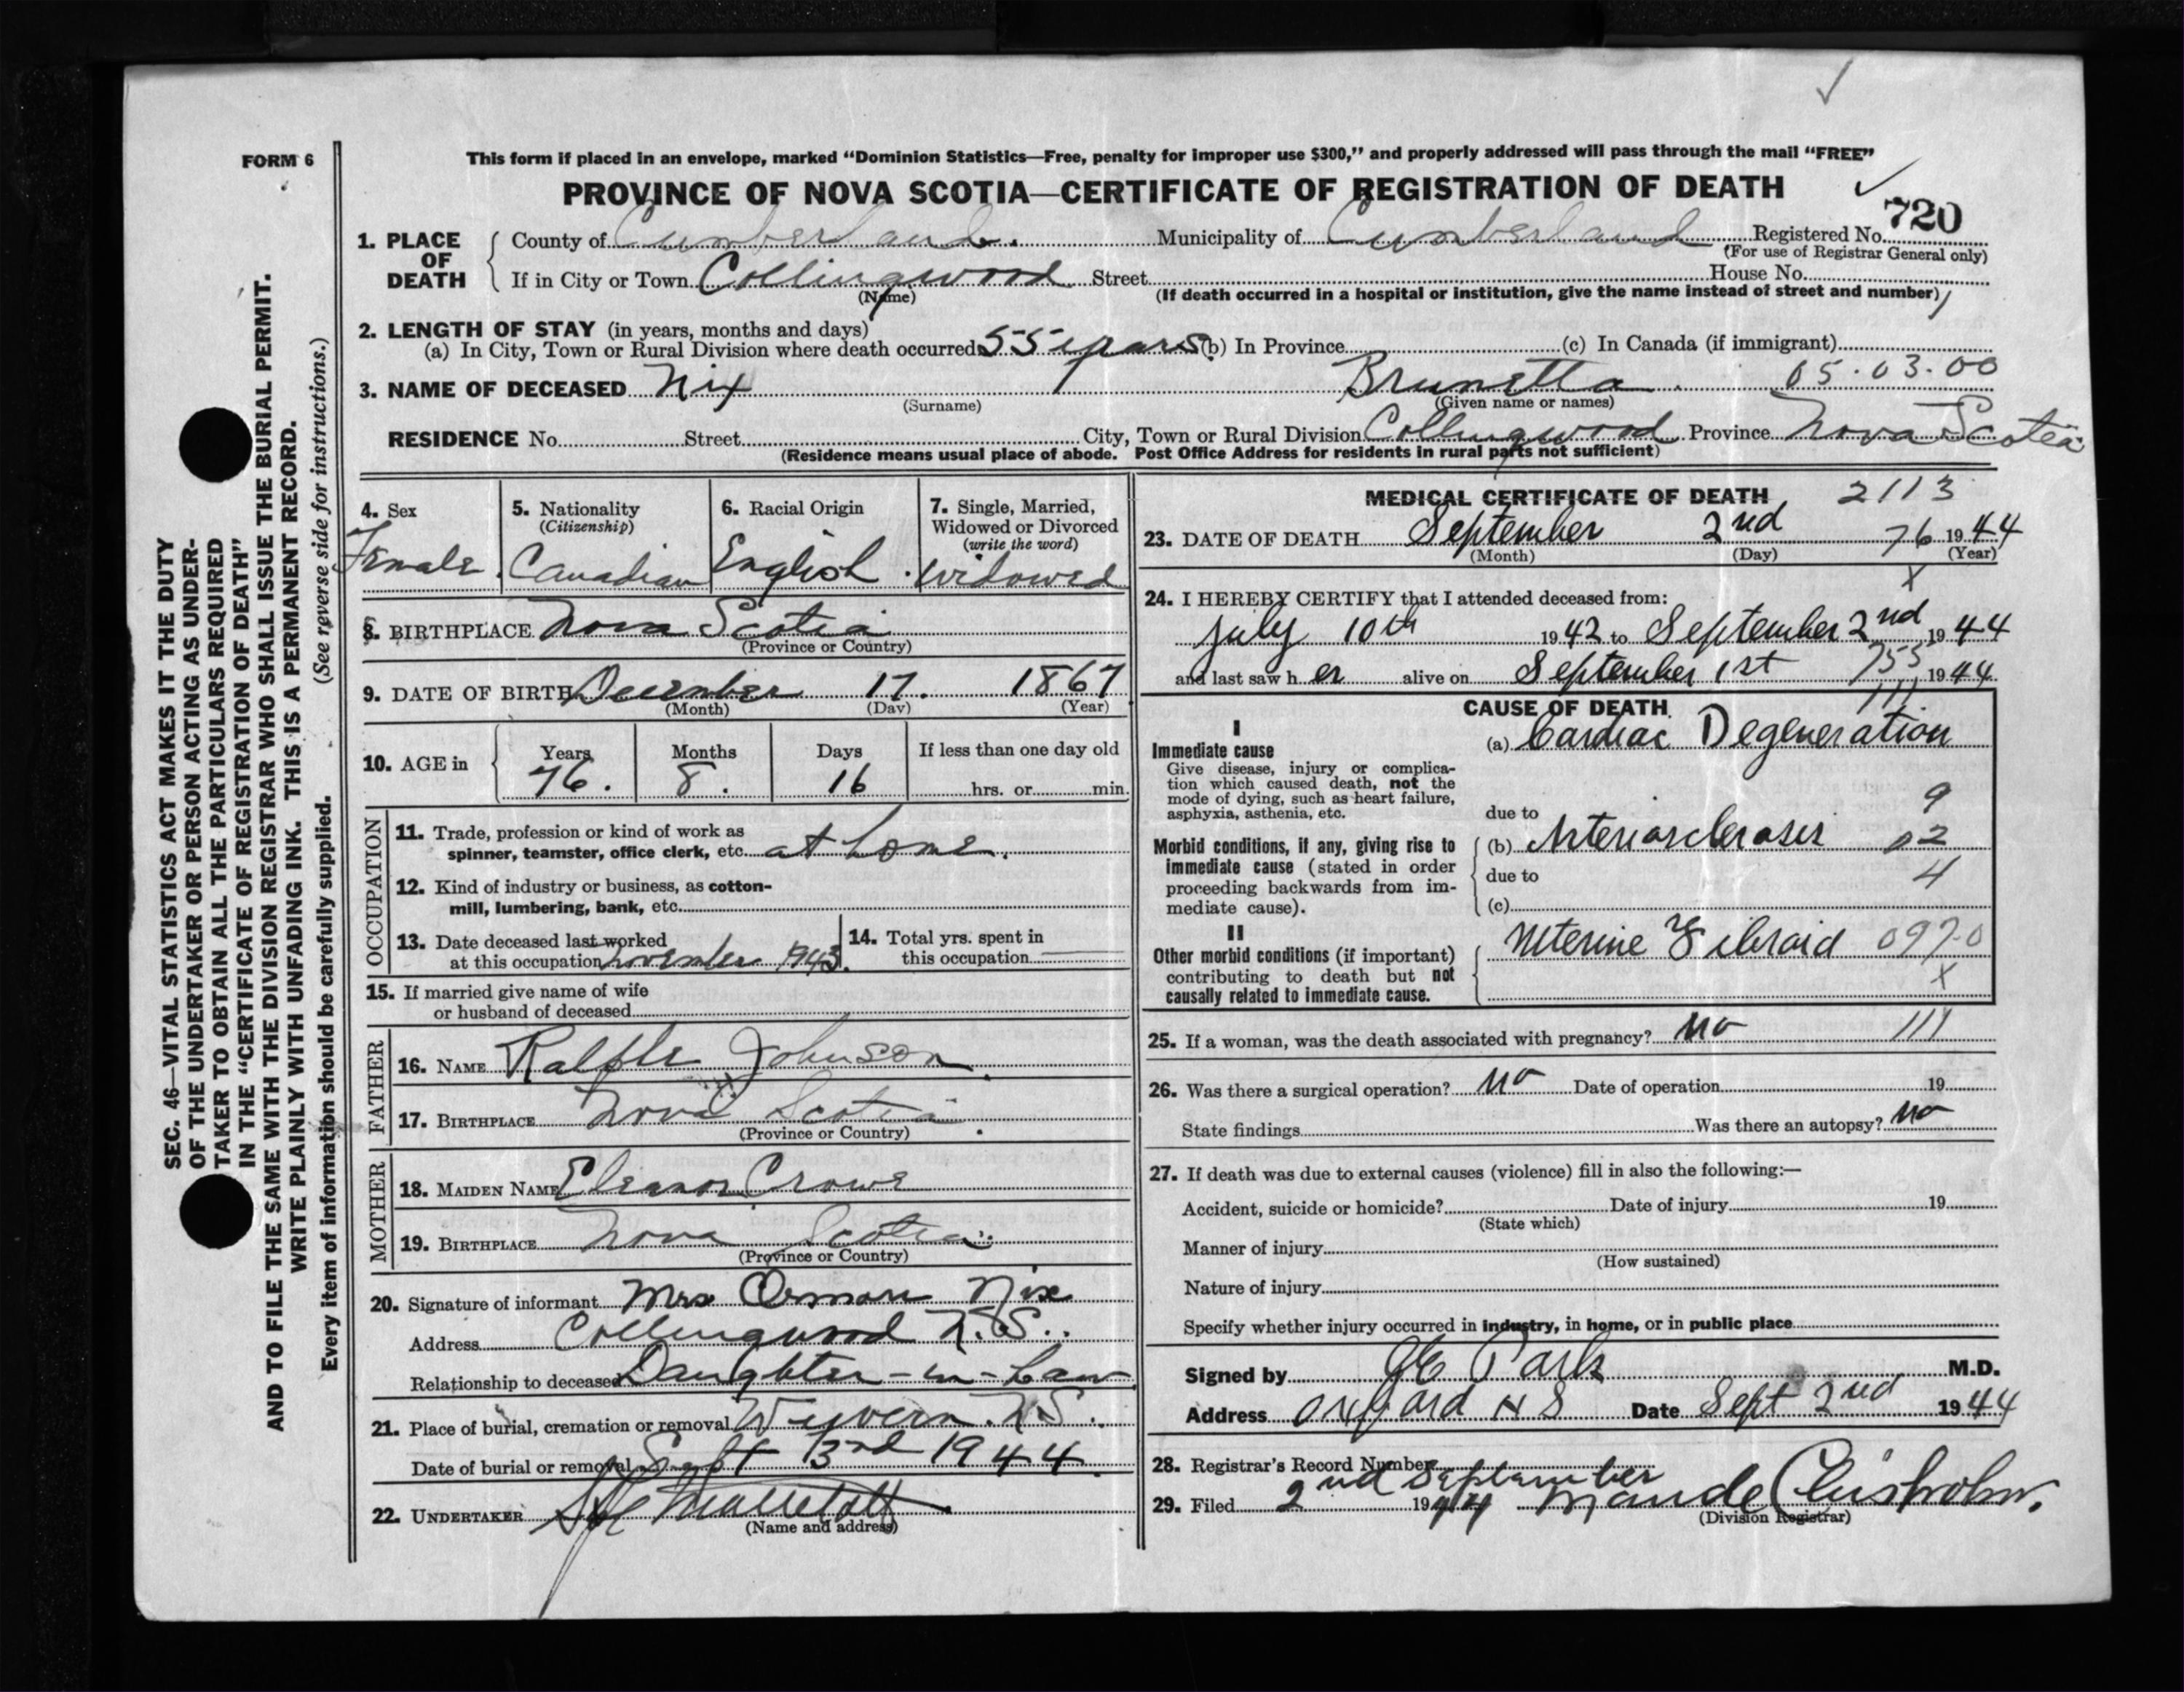 FORM 6
This form if placed in an envelope, marked “Dominion Statistics—Free, penalty for improper use $300,” and properly addressed will pass through the mail “FREE”
PROVINCE OF NOVA SCOTIA—CERTIFICATE OF REGISTRATION OF DEATH
1. PLACE OF DEATH
County of Cumberland. Municipality of Cumberland Registered No. 720
(For use of Registrar General only)
If in City or Town Collingwood Street House No.
(Name) (If death occurred in a hospital or institution, give the name instead of street and number)
2. LENGTH OF STAY (in years, months and days)
(a) In City, Town or Rural Division where death occurred 55 years (b) In Province (c) In Canada (if immigrant)
3. NAME OF DECEASED Nix Brunetta 05.03.00
(Surname) (Given name or names)
RESIDENCE No. Street City, Town or Rural Division Collingwood Province Nova Scotia
(Residence means usual place of abode. Post Office Address for residents in rural parts not sufficient)
4. Sex
Female
5. Nationality
(Citizenship)
Canadian
6. Racial Origin
English
7. Single, Married,
Widowed or Divorced
(write the word)
Widowed
8. BIRTHPLACE Nova Scotia
(Province or Country)
9. DATE OF BIRTH December 17. 1867
(Month) (Day) (Year)
10. AGE in
Years Months Days If less than one day old
76. 8. 16 hrs. or min.
OCCUPATION
11. Trade, profession or kind of work as
spinner, teamster, office clerk, etc. at home.
12. Kind of industry or business, as cotton-
mill, lumbering, bank, etc.
13. Date deceased last worked
at this occupation November 1943.
14. Total yrs. spent in
this occupation
15. If married give name of wife
or husband of deceased
FATHER
16. NAME Johnson
17. BIRTHPLACE Nova Scotia
(Province or Country)
MOTHER
18. MAIDEN NAME Eleanor Crowe
19. BIRTHPLACE Nova Scotia
(Province or Country)
20. Signature of informant Mrs Nix
Address Collingwood N.S.
Relationship to deceased Daughter-in-Law
21. Place of burial, cremation or removal Wyvern. N.S.
Date of burial or removal Sept 3rd 1944.
22. UNDERTAKER
(Name and address)
MEDICAL CERTIFICATE OF DEATH 2113
23. DATE OF DEATH September 2nd 76 1944
(Month) (Day) (Year)
X
24. I HEREBY CERTIFY that I attended deceased from:
July 10th 1942 to September 2nd 1944
and last saw her alive on September 1st 1944
CAUSE OF DEATH
I
Immediate cause
Give disease, injury or complica-
tion which caused death, not the
mode of dying, such as heart failure,
asphyxia, asthenia, etc.
(a) Cardiac Degeneration
9
due to
Morbid conditions, if any, giving rise to
immediate cause (stated in order
proceeding backwards from im-
mediate cause).
(b) Arteriosclerosis 02
due to 4
(c)
II
Other morbid conditions (if important)
contributing to death but not
causally related to immediate cause.
Uterine Fibroid 097-0
X
25. If a woman, was the death associated with pregnancy? no 111
26. Was there a surgical operation? no Date of operation 19
State findings Was there an autopsy? no
27. If death was due to external causes (violence) fill in also the following:—
Accident, suicide or homicide? Date of injury 19
(State which)
Manner of injury
(How sustained)
Nature of injury
Specify whether injury occurred in industry, in home, or in public place
Signed by Park M.D.
Address Oxford N S Date Sept 2nd 1944
28. Registrar's Record Number
29. Filed 2nd September 1944 Maude Chisholm.
(Division Registrar)
SEC. 46—VITAL STATISTICS ACT MAKES IT THE DUTY
OF THE UNDERTAKER OR PERSON ACTING AS UNDER-
TAKER TO OBTAIN ALL THE PARTICULARS REQUIRED
IN THE “CERTIFICATE OF REGISTRATION OF DEATH”
AND TO FILE THE SAME WITH THE DIVISION REGISTRAR WHO SHALL ISSUE THE BURIAL PERMIT.
WRITE PLAINLY WITH UNFADING INK. THIS IS A PERMANENT RECORD.
Every item of information should be carefully supplied. (See reverse side for instructions.)